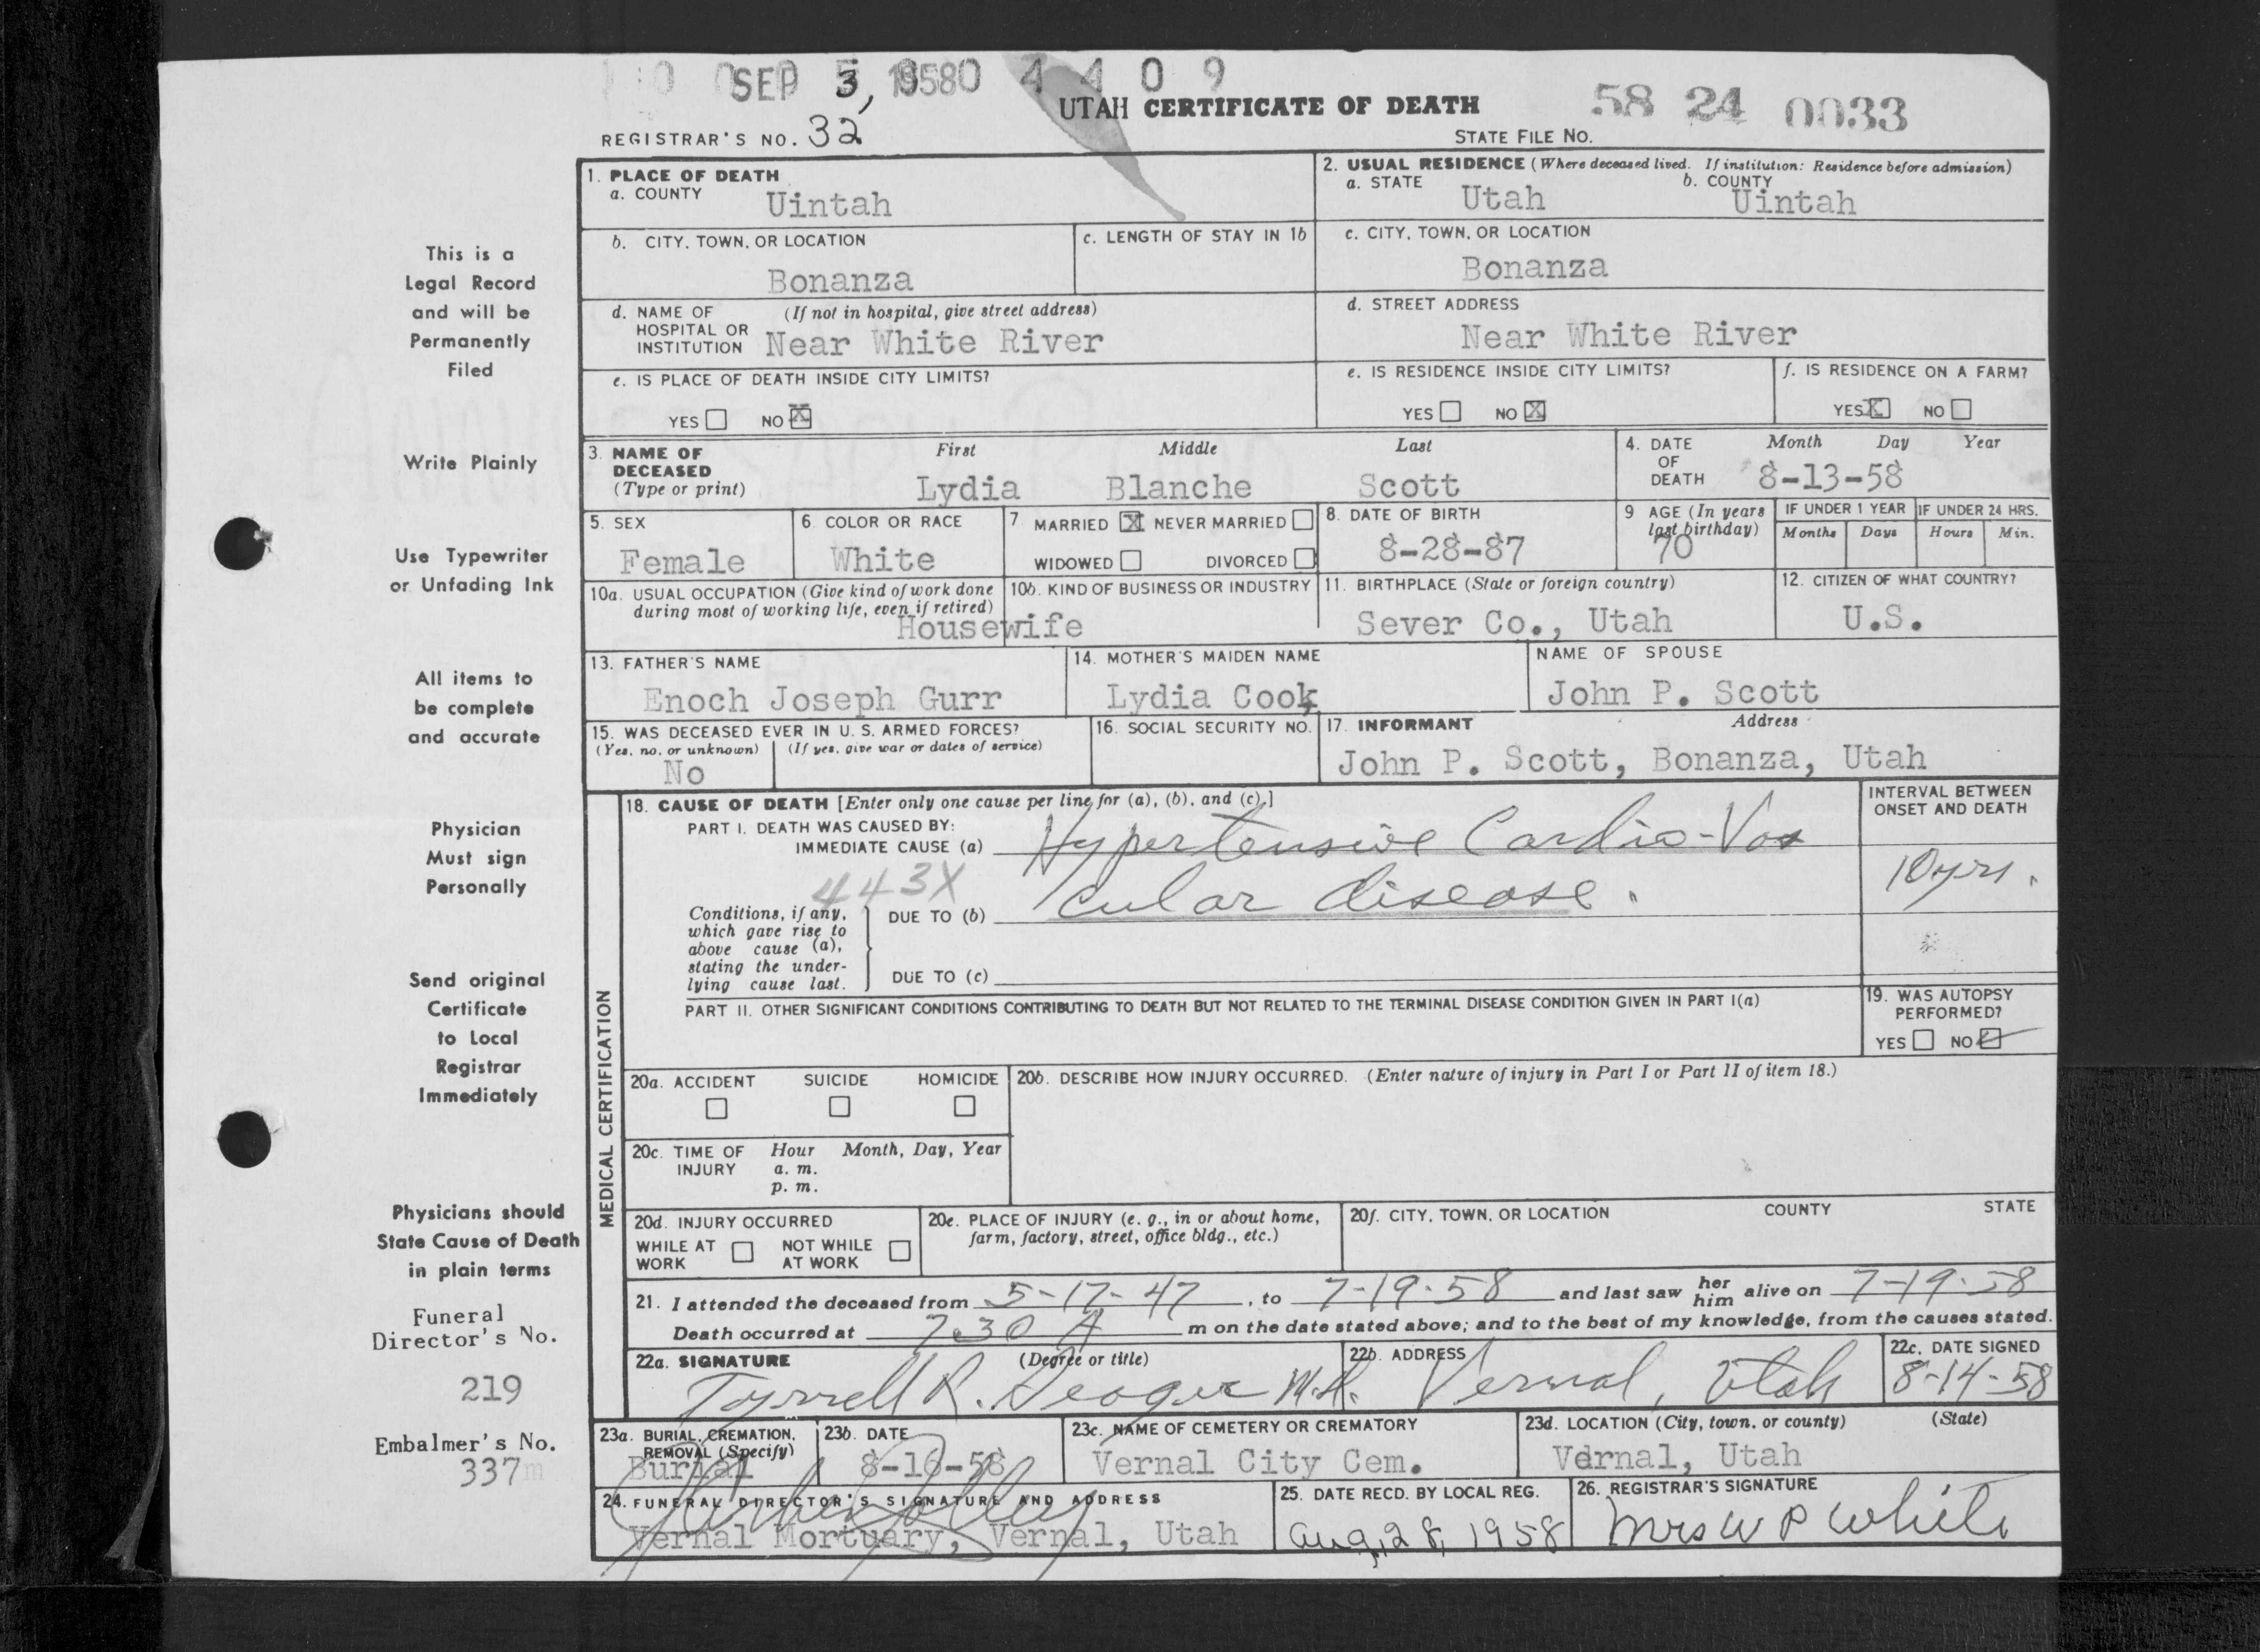 SEP 3, 1958 0 4 4 0 9
UTAH CERTIFICATE OF DEATH
58 24 0033
REGISTRAR'S NO. 32
STATE FILE NO.
1. PLACE OF DEATH
a. COUNTY Uintah
2. USUAL RESIDENCE (Where deceased lived. If institution: Residence before admission)
a. STATE Utah b. COUNTY Uintah
b. CITY, TOWN, OR LOCATION Bonanza
c. LENGTH OF STAY IN 1b
c. CITY, TOWN, OR LOCATION
Bonanza
d. NAME OF HOSPITAL OR INSTITUTION (If not in hospital, give street address)
Near White River
d. STREET ADDRESS
Near White River
e. IS PLACE OF DEATH INSIDE CITY LIMITS?
YES NO X
e. IS RESIDENCE INSIDE CITY LIMITS?
YES NO X
f. IS RESIDENCE ON A FARM?
YES X NO
3. NAME OF DECEASED (Type or print)
First Middle Last
Lydia Blanche Scott
4. DATE OF DEATH Month Day Year
8-13-58
5. SEX
Female
6. COLOR OR RACE
White
7. MARRIED X NEVER MARRIED
WIDOWED DIVORCED
8. DATE OF BIRTH
8-28-87
9 AGE (In years last birthday)
70
IF UNDER 1 YEAR
Months Days
IF UNDER 24 HRS.
Hours Min.
10a. USUAL OCCUPATION (Give kind of work done during most of working life, even if retired)
Housewife
10b. KIND OF BUSINESS OR INDUSTRY
11. BIRTHPLACE (State or foreign country)
Sever Co., Utah
12. CITIZEN OF WHAT COUNTRY?
U.S.
13. FATHER'S NAME
Enoch Joseph Gurr
14. MOTHER'S MAIDEN NAME
Lydia Cook
NAME OF SPOUSE
John P. Scott
15. WAS DECEASED EVER IN U. S. ARMED FORCES?
(Yes, no, or unknown) (If yes, give war or dates of service)
No
16. SOCIAL SECURITY NO.
17. INFORMANT Address
John P. Scott, Bonanza, Utah
MEDICAL CERTIFICATION
18. CAUSE OF DEATH [Enter only one cause per line for (a), (b), and (c).]
INTERVAL BETWEEN ONSET AND DEATH
PART I. DEATH WAS CAUSED BY:
IMMEDIATE CAUSE (a) Hypertensive Cardio-Vas
443X
10 yrs.
Conditions, if any, which gave rise to above cause (a), stating the underlying cause last.
DUE TO (b) cular disease.
DUE TO (c)
PART II. OTHER SIGNIFICANT CONDITIONS CONTRIBUTING TO DEATH BUT NOT RELATED TO THE TERMINAL DISEASE CONDITION GIVEN IN PART I(a)
19. WAS AUTOPSY PERFORMED?
YES NO
20a. ACCIDENT SUICIDE HOMICIDE
20b. DESCRIBE HOW INJURY OCCURRED. (Enter nature of injury in Part I or Part II of item 18.)
20c. TIME OF INJURY Hour Month, Day, Year
a. m.
p. m.
20d. INJURY OCCURRED
WHILE AT WORK NOT WHILE AT WORK
20e. PLACE OF INJURY (e. g., in or about home, farm, factory, street, office bldg., etc.)
20f. CITY, TOWN, OR LOCATION COUNTY STATE
21. I attended the deceased from 5-17-47, to 7-19-58 and last saw her him alive on 7-19-58
Death occurred at 7:30 A m on the date stated above; and to the best of my knowledge, from the causes stated.
22a. SIGNATURE (Degree or title)
Tyrrell R. Seager M.D.
22b. ADDRESS
Vernal, Utah
22c. DATE SIGNED
8-14-58
23a. BURIAL, CREMATION, REMOVAL (Specify)
Burial
23b. DATE
8-16-58
23c. NAME OF CEMETERY OR CREMATORY
Vernal City Cem.
23d. LOCATION (City, town, or county) (State)
Vernal, Utah
24. FUNERAL DIRECTOR'S SIGNATURE AND ADDRESS
Vernal Mortuary, Vernal, Utah
25. DATE RECD. BY LOCAL REG.
Aug, 28, 1958
26. REGISTRAR'S SIGNATURE
Mrs W P White
This is a
Legal Record
and will be
Permanently
Filed
Write Plainly
Use Typewriter
or Unfading Ink
All items to
be complete
and accurate
Physician
Must sign
Personally
Send original
Certificate
to Local
Registrar
Immediately
Physicians should
State Cause of Death
in plain terms
Funeral
Director's No.
219
Embalmer's No.
337m